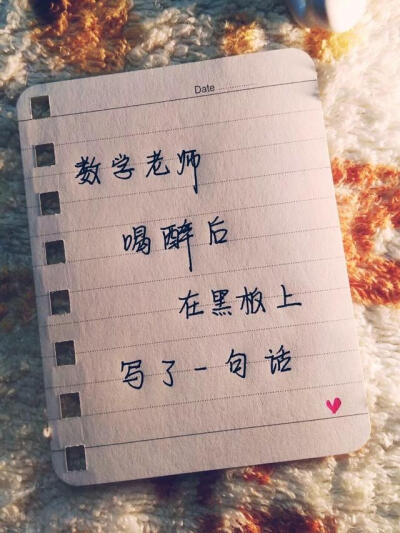 Date
数学老师
喝醉后
在黑板上
写了一句话